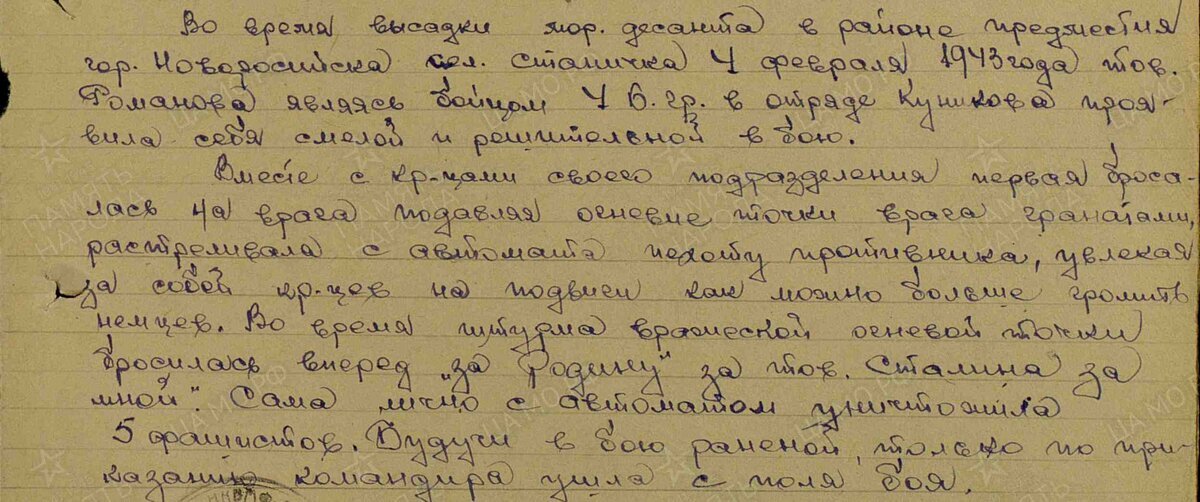 Во время высадки мор. десанта в районе предместия
гор. Новоросийска сел. Станичка 4 февраля 1943 года тов.
Романова являясь бойцом 4 б. гр. в отряде Куникова проя-
вила себя смелой и решительной в бою.
Вместе с кр-цами своего подразделения первая броса-
лась на врага подавляя огневые точки врага гранатами,
растреливала с автомата пехоту противника, увлекая
за собой кр-цев на подвиги как можно больше громить
немцев. Во время штурма вражеской огневой точки
бросилась вперед „за Родину" за тов. Сталина за
мной". Сама лично с автоматом уничтожила
5 фашистов. Будучи в бою раненой, только по при-
казанию командира ушла с поля боя.